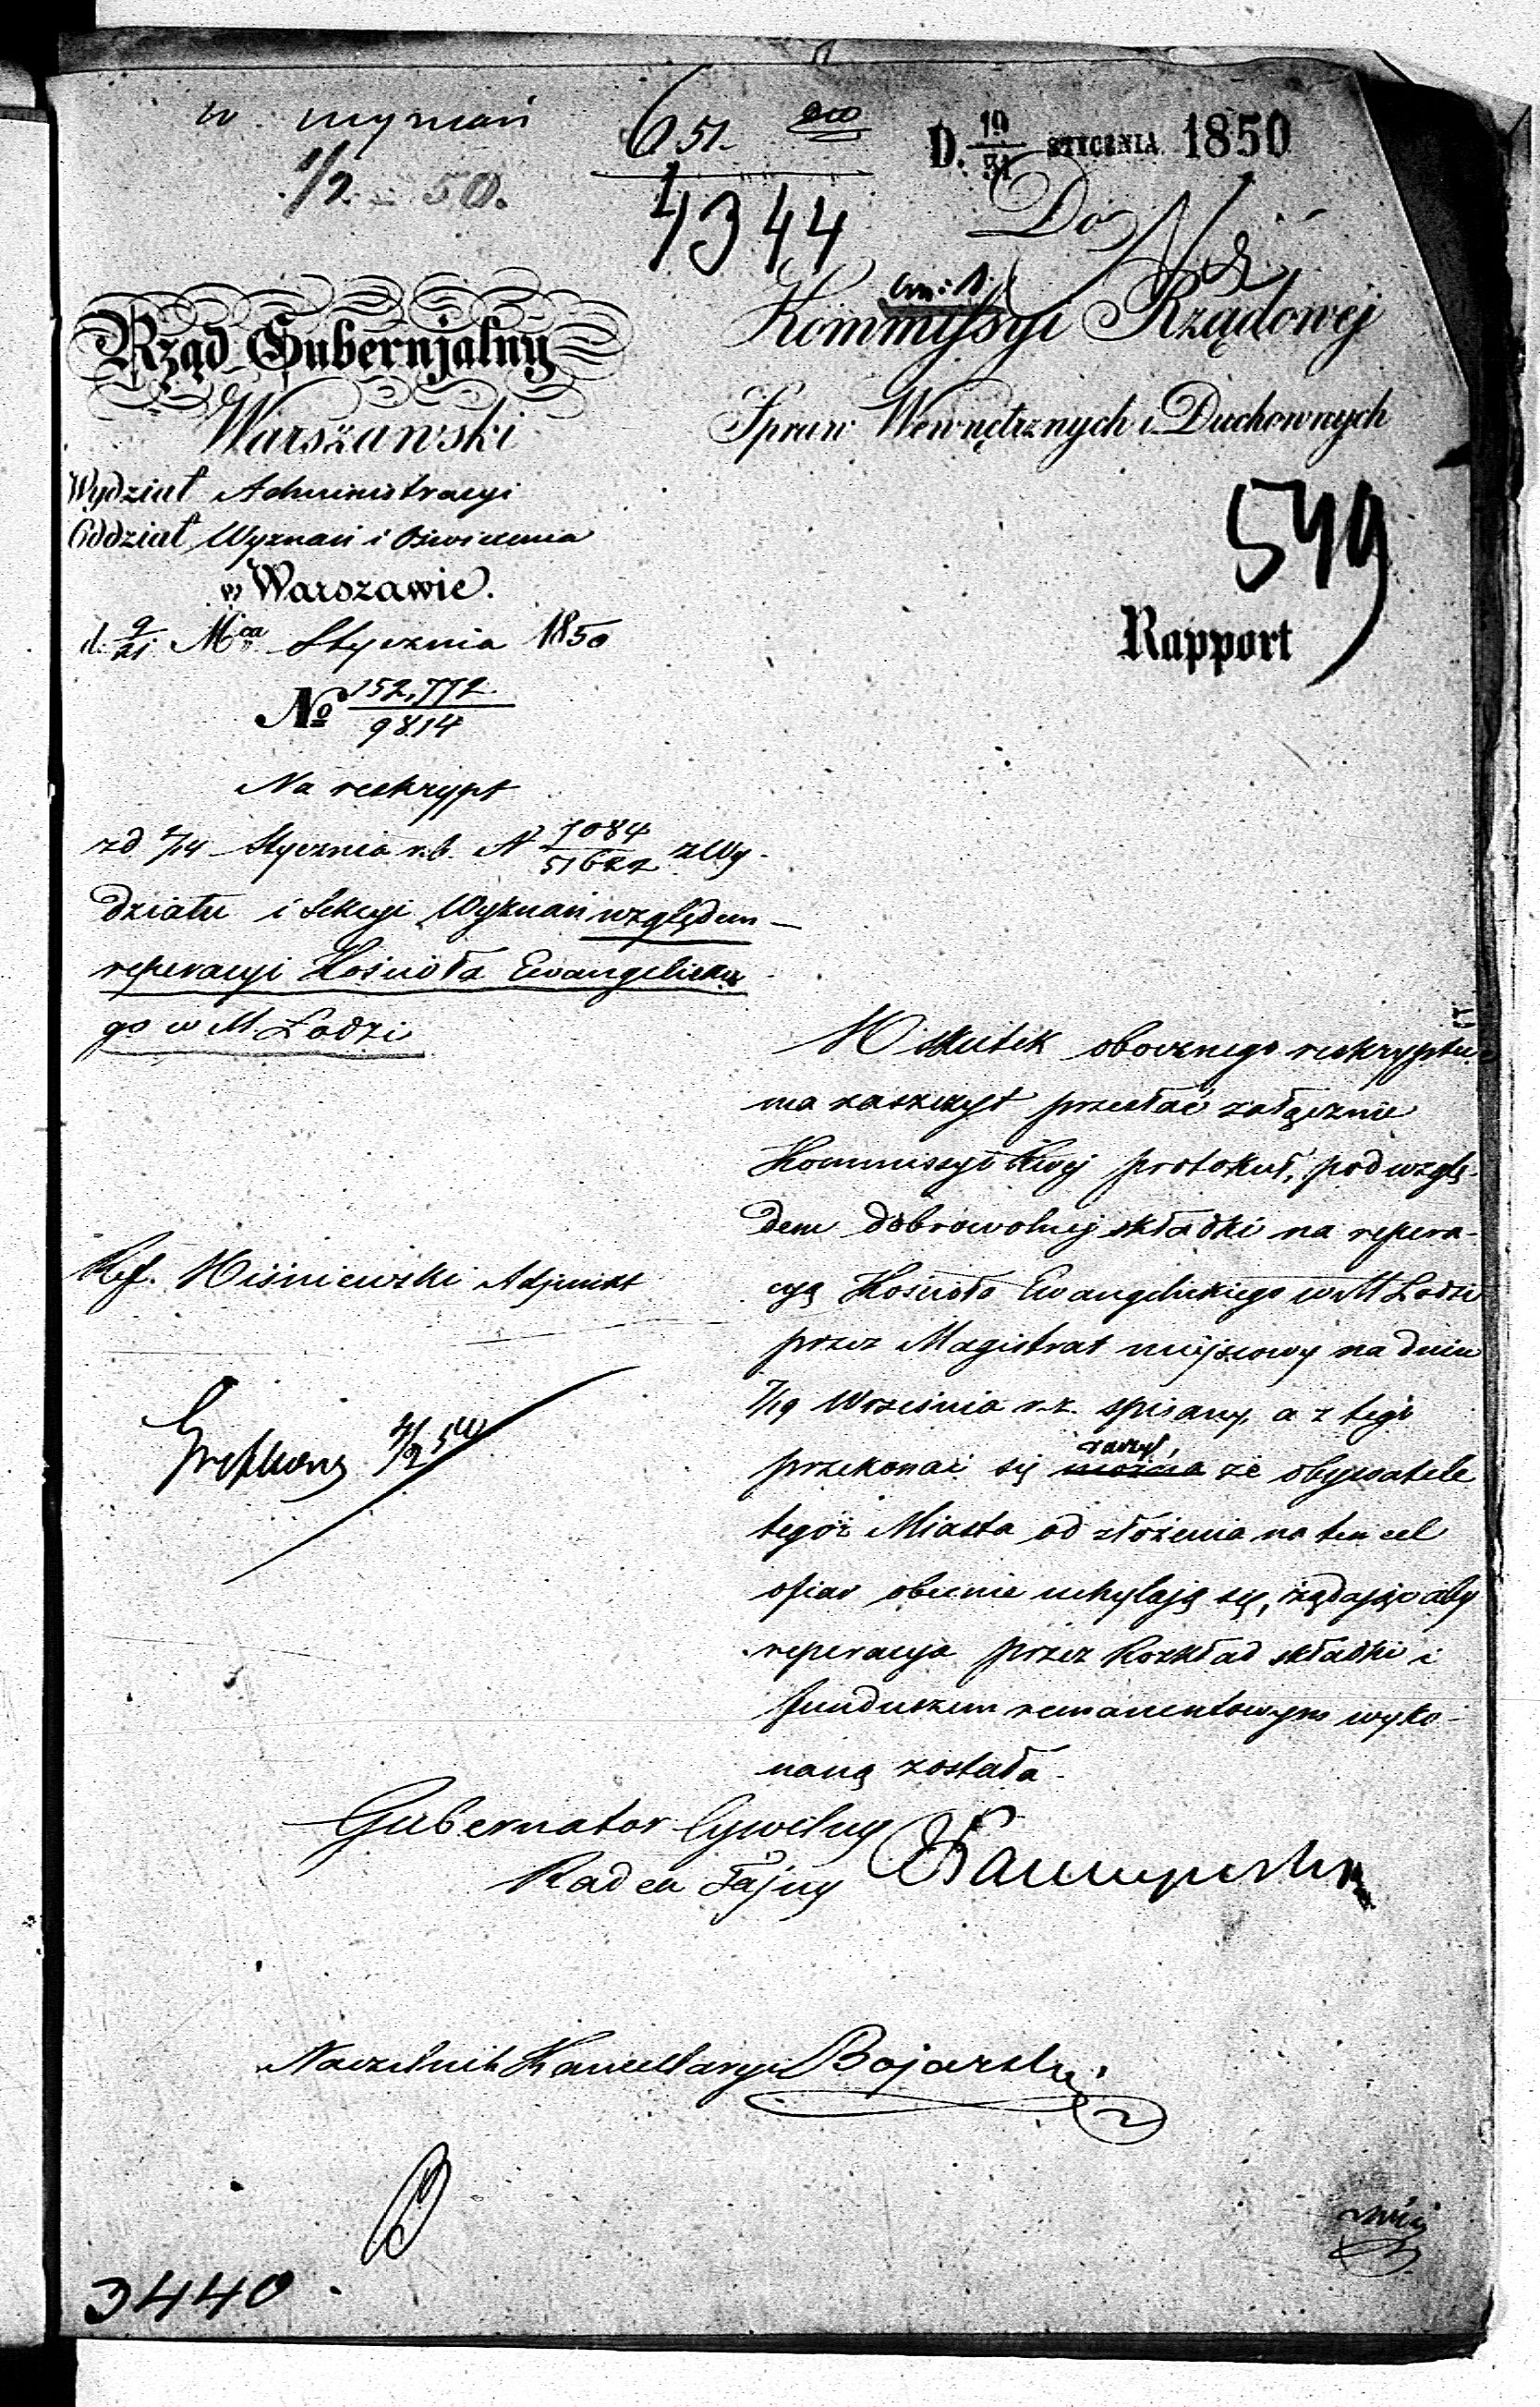 w. wyznań
1/2 50.
651.
4344
D. 19/31 STYCZNIA 1850
Do
Kommissyi Rządowej
Spraw Wewnętrznych i Duchownych
549
Rapport
Rząd Gubernjalny
Warszawski
Wydział Administracyi
Oddział Wyznań i Oświecenia
w Warszawie.
d. 9/21 Mca Stycznia 1850
No 152,772/9814
Na reskrypt
zd 2/14 Stycznia r.b. N 1084/51622 z Wy-
działu i Sekcyi Wyznań względem
reperacyi Kościoła Ewangelickie
go w M. Łodzi
W skutek obocznego reskryptu
ma zaszczyt przesłać załącznie
Kommissyi Rwej protokuł, pod wzglę-
dem dobrowolnej składki na repera-
cyą Kościoła Ewangelickiego w M Łodzi
przez Magistrat miejscowy na dniu
7/19 Września r.z. spisany, a z tego
przekonać się raczy, że obywatele
tegoż Miasta od złożenia na ten cel
ofiar obecnie uchylają się, żądając aby
reperacya przez Rozkład składki i
funduszem remanentowym wyko-
naną została.
Ref. Wiśniewski Adjunkt
Gubernator Cywilny
Radca Tajny
Naczelnik Kancellaryi Bojarski
3440